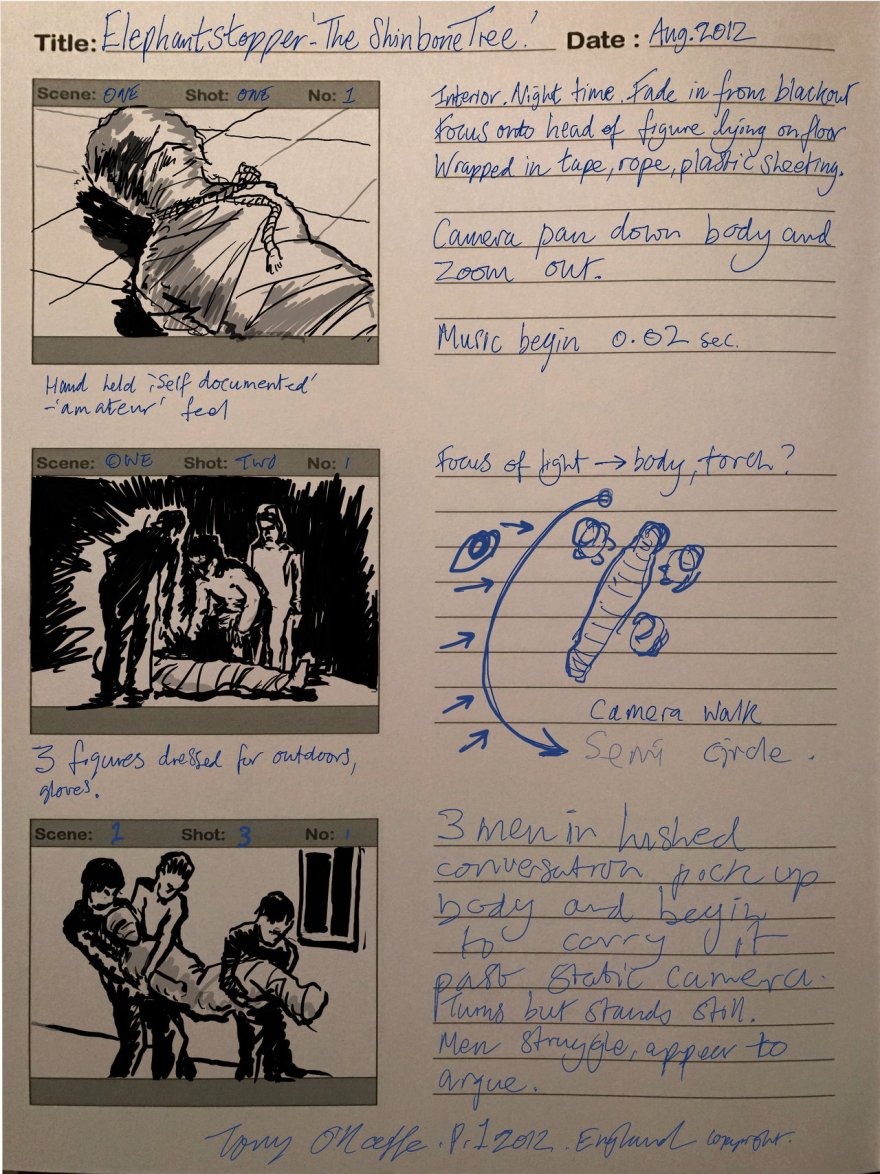 Title: Elephantstopper-'The Shinbone Tree.' Date : Aug. 2012
Scene: ONE Shot: ONE No: 1
Interior. Night time. Fade in from blackout
Focus onto head of figure lying on floor
Wrapped in tape, rope, plastic sheeting.
Camera pan down body and
zoom out.
Music begin 0.02 sec.
Hand held 'self documented'
-'amateur' feel
Scene: ONE Shot: TWO No: 1
Focus of light → body, torch?
Camera walk
Semi circle.
3 figures dressed for outdoors,
gloves.
Scene: 1 Shot: 3 No: 1
3 men in hushed
conversation pick up
body and begin
to carry it
past static camera.
Turns but stands still.
Men struggle, appear to
argue.
Tony O'Keeffe. P.1 2012. England copyright.